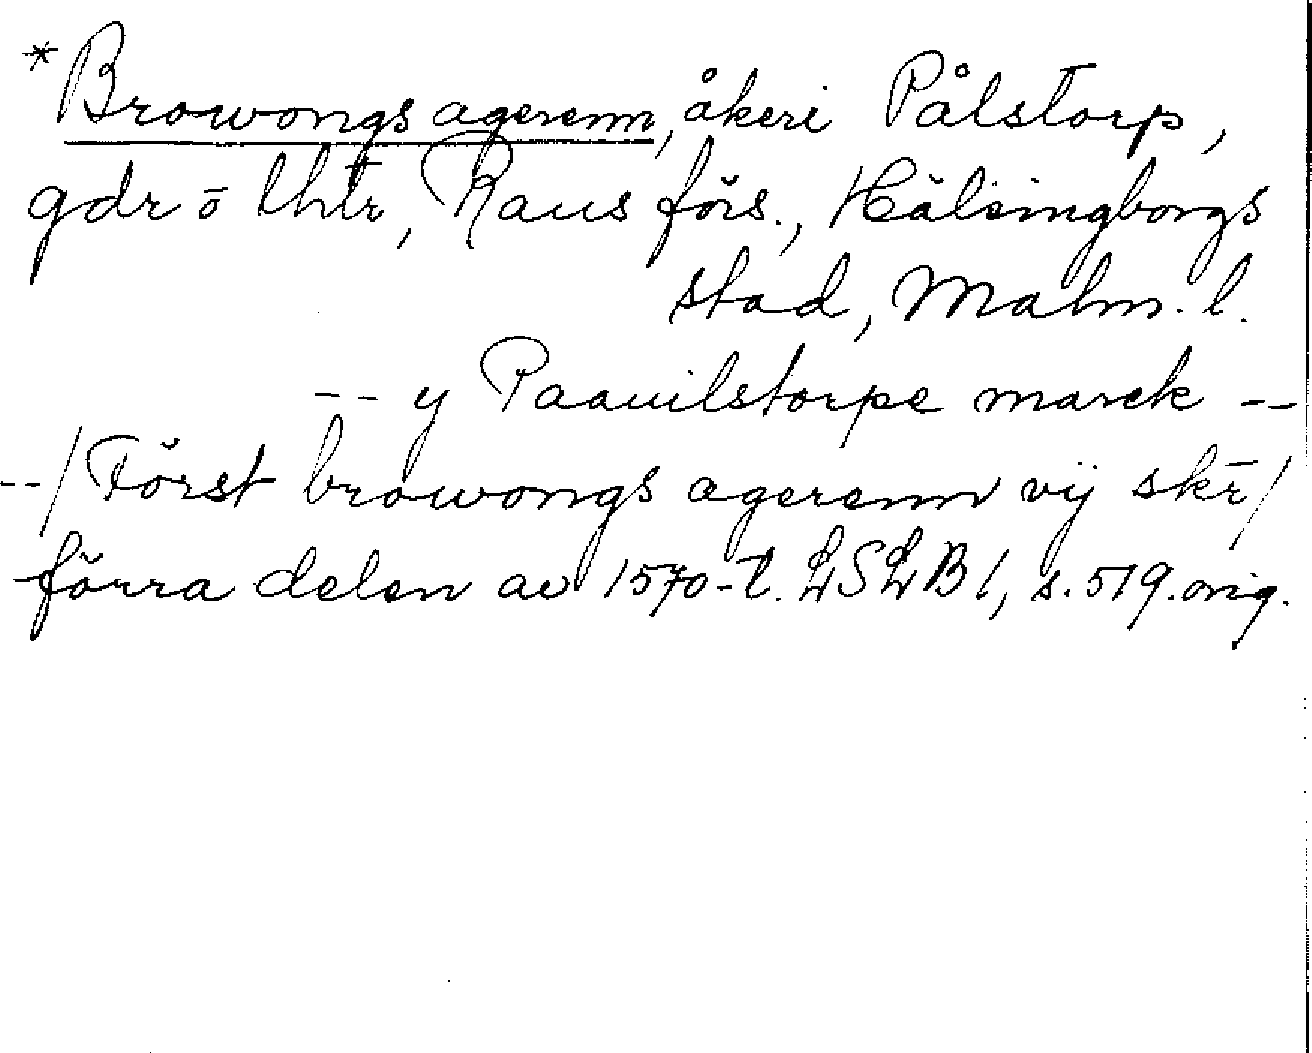 *Browongs agerenn, åker i Pålstorp,
gdr o lht:r, Raus förs., Hälsingborgs
stad, Malm. l.
-- y Paauilstorpe marck --
--/Först browongs agerenn vij skr̄/
förra delen av 1570-t. LSLB 1, s. 519. orig.